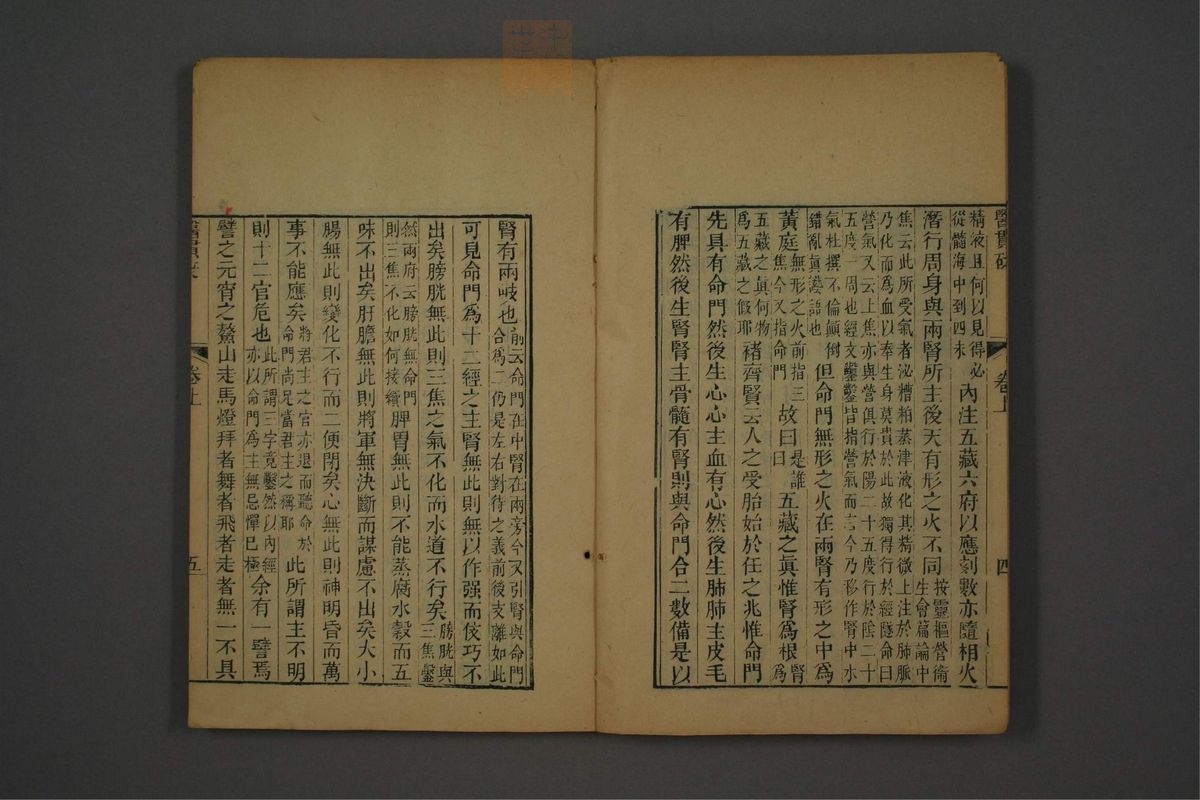 醫貫砭
卷上
四
精液且何以見得必
從髓海中到四末
內注五藏六府以應刻數亦隨相火
潛行周身與兩腎所主後天有形之火不同
按靈樞營衛
生會篇論中
焦云此所受氣者泌糟粕蒸津液化其精微上注於肺脈
乃化而為血以奉生身莫貴於此故獨得行於經隧命曰
營氣又云上焦亦與營俱行於陽二十五度行於陰二十
五度一周也經文鑿鑿皆指營氣而言今乃移作腎中水
氣杜撰不倫顛倒
錯亂眞囈語也
但命門無形之火在兩腎有形之中爲
黃庭
無形之火前指三
焦今又指命門
故曰
是誰
曰
五藏之眞惟腎爲根
腎
爲
五藏之眞何物
爲五藏之假耶
褚齊賢云人之受胎始於任之兆惟命門
先具有命門然後生心心主血有心然後生肺肺主皮毛
有脾然後生腎腎主骨髓有腎則與命門合二數備是以
腎有兩岐也
前云命門在中腎在兩旁今又引腎與命門
合爲二仍是左右對待之義前後支離如此
可見命門爲十二經之主腎無此則無以作强而伎巧不
出矣膀胱無此則三焦之氣不化而水道不行矣
膀胱與
三焦鑿
然兩府云膀胱無命門
則三焦不化如何接續
脾胃無此則不能蒸腐水穀而五
味不出矣肝膽無此則將軍無決斷而謀慮不出矣大小
腸無此則變化不行而二便閉矣心無此則神明昏而萬
事不能應矣
將君主之官亦退而聽命於
命門尚足當君主之稱耶
此所謂主不明
則十二官危也
此所謂三字竟鑿然以內經
亦以命門爲主無忌憚已極
余有一譬焉
譬之元宵之鰲山走馬燈拜者舞者飛者走者無一不具
卷上
五